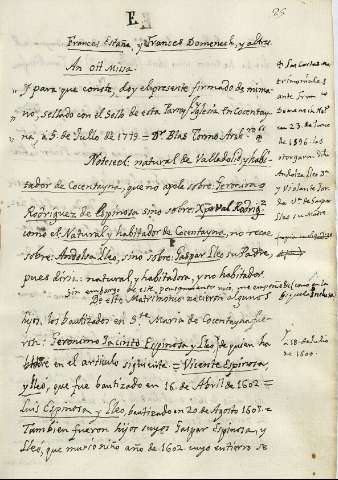 E.
25
Frances Estaña, y Frances Domenech, y altres.
An oït Missa.
Y para que conste, doy el presente firmado de mi ma-
no, sellado con el Sello de esta Parroql Iglesia En Cocentay-
na, à 5 de Julio de 1779. = Dr. Blas Torno
Notese: natural de Valladolid y habi-
tador de Cocentayna, que nò apela sobre Geronimo
Rodriguez de Espinosa sino sobre: Xpoval Rodrig.z
como el Natural y habitador de Cocentayna, no recae
sobre: Andolsa Lleo, sino sobre: Gaspar Lleo su Padre,
pues diria: natural y habitadora, y no habitador.
Sin embargo de este pensamiento mio, me
De este Matrimonio nacieron algunos
hijos, los bautizados en S.ta Maria de Cocentayna fue-
ron: Geronimo Jacinto Espinosa y Lleo, de quien ha-
blare en el articulo siguiente. = Vicente Espinosa,
y Lleo, que fue bautizado en 16 de Abril de 1602 =
Luis Espinosa y Lleo, bautizado en 20 de Agosto
Tambien fueron hijos suyos Gaspar Espinosa, y
Lleo, que murio niño año de 1602 cuyo entierro se
Sus Cartas ma-
trimoniales
ante
en 23 de Junio
de 1596. las
otorgaron
Andolza Lleo
y Violante
de Gaspar
Lleo su Padre
y incluso.
18 de Julio
de 1600.